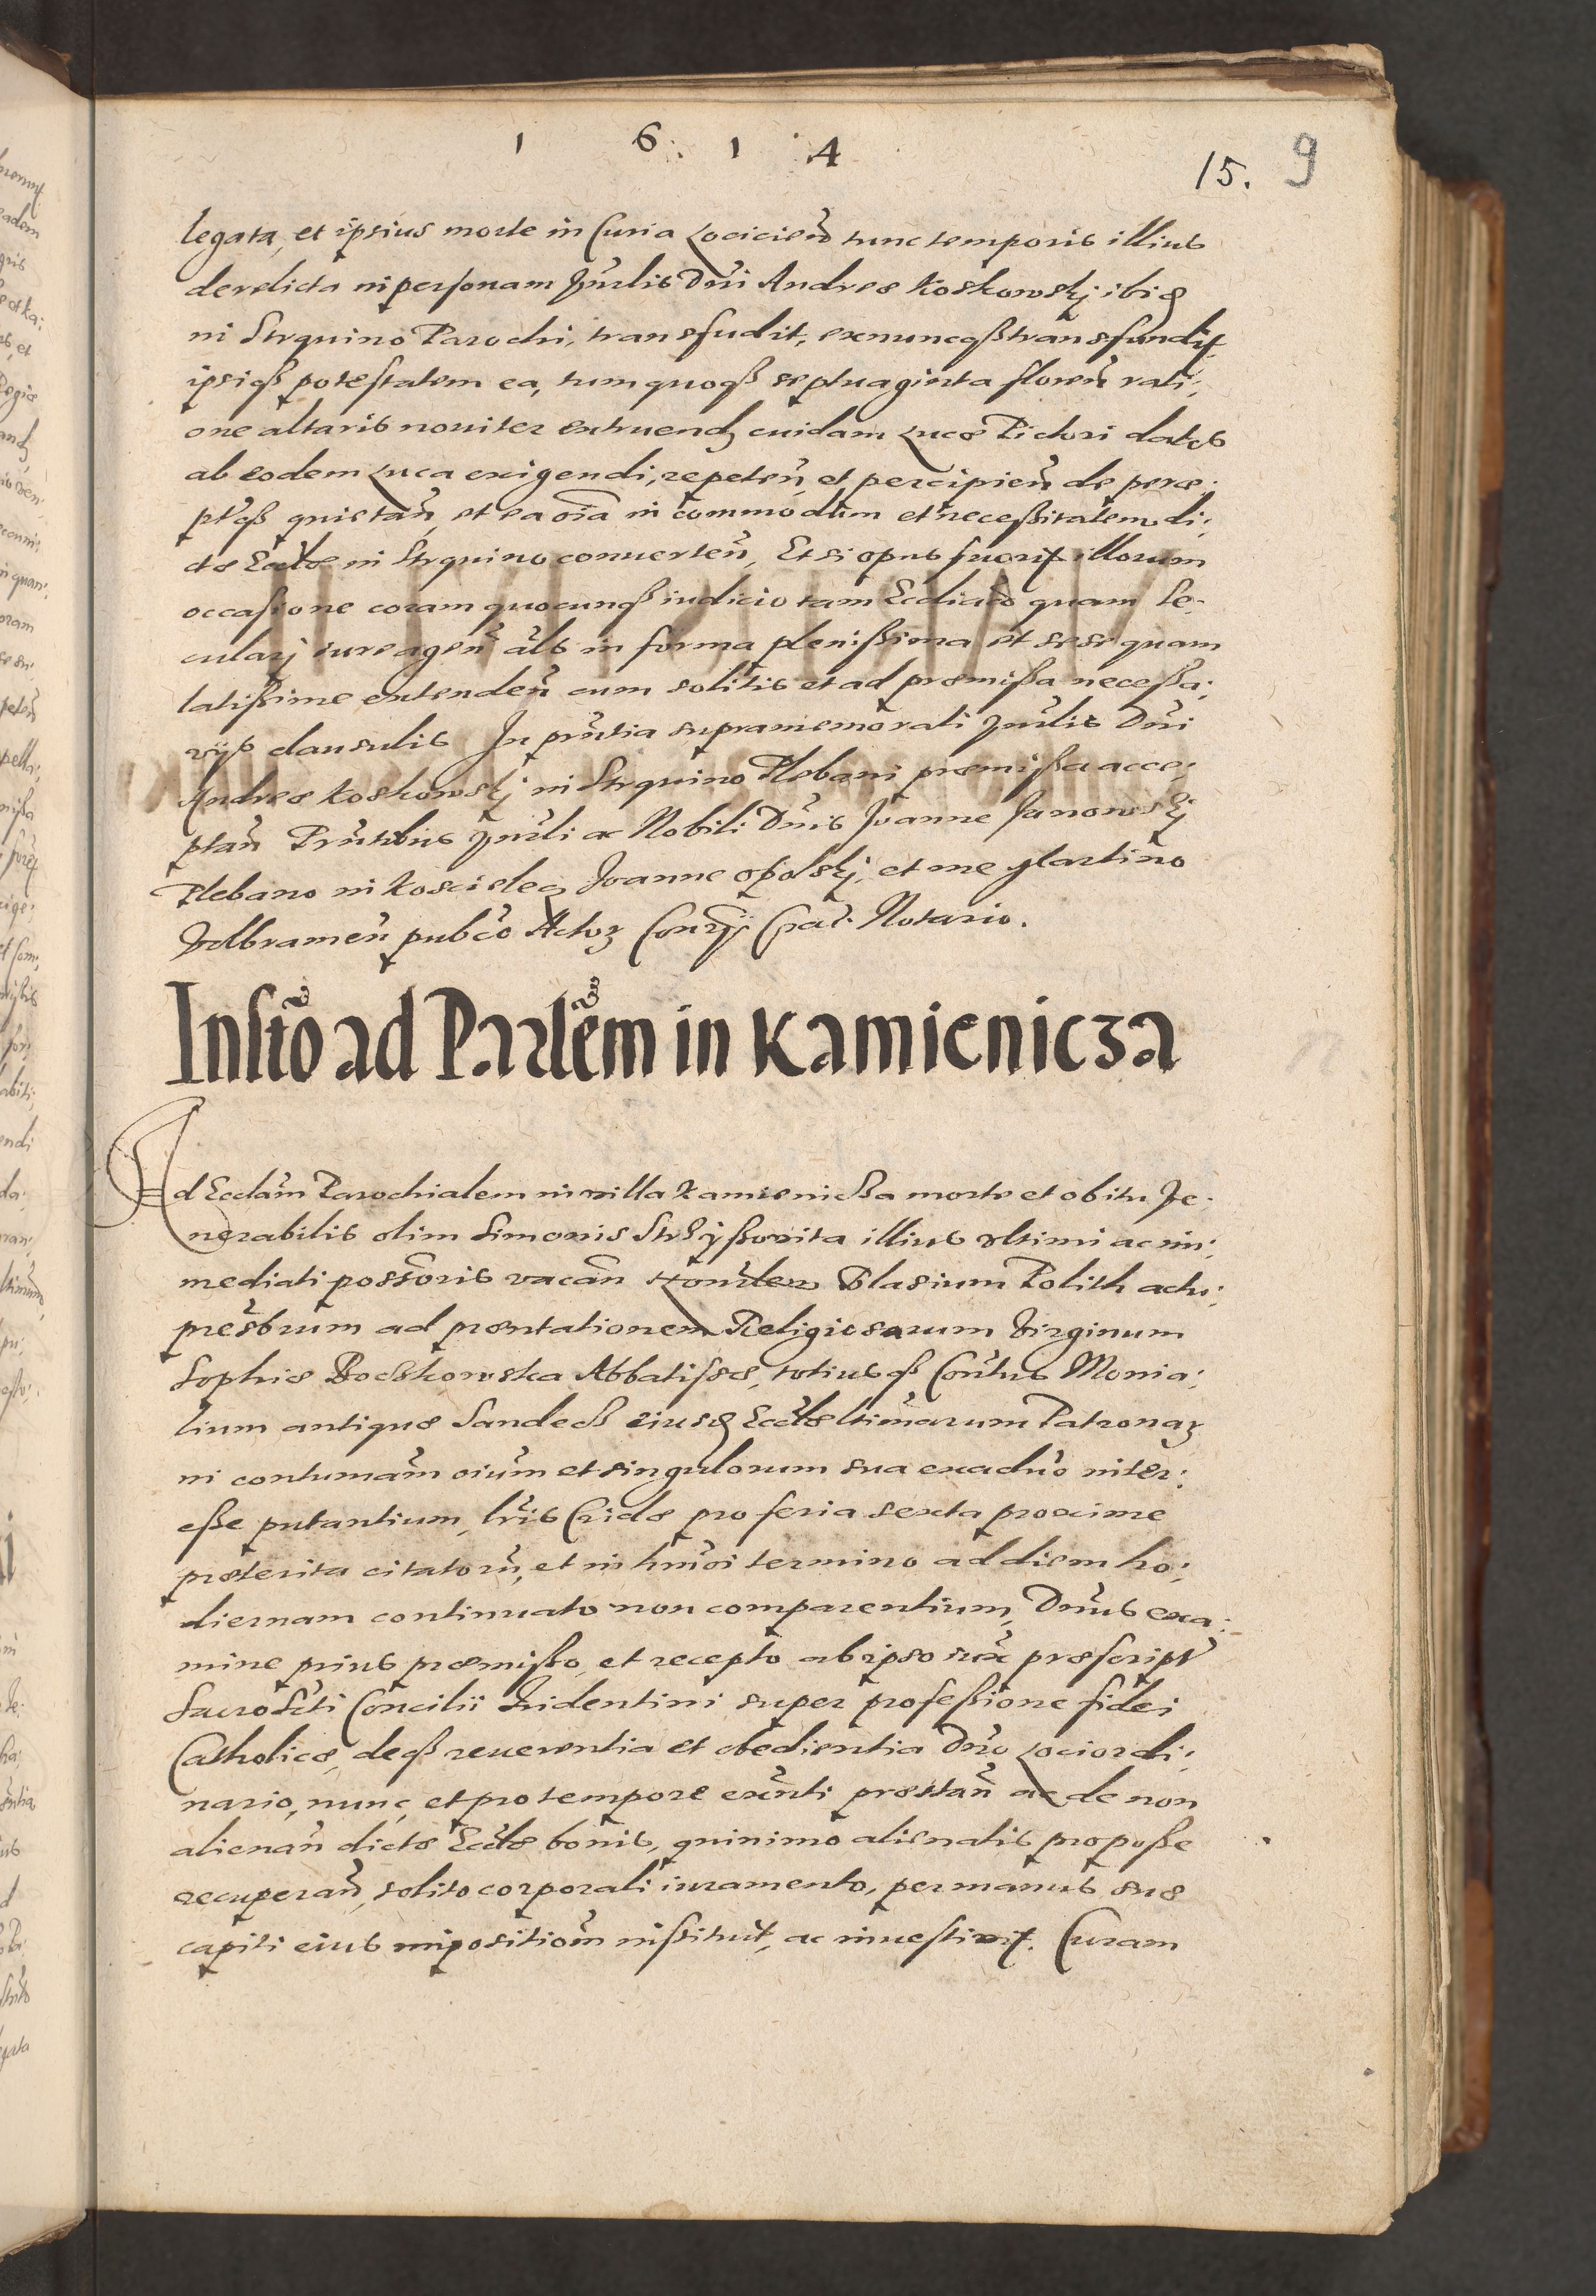 1 6. 1 4
15. 9
legata, et ipsius morte in Curia Locicien̄ tunc temporis illius
derelicta in personam Vnrlis Dni Andreæ Koskowskj ibid
in Strquino Parochi, transfudit, exnuncqß transfundit
ipsiqß potestatem ea, tum quoqß septuaginta floren̄ rati:
one altaris noviter extruendj cuidam Lucæ Pictori datos
ab eodem Luca exigendi, repeten̄, et percipien̄ de perce:
ptisqß quietan̄, et ea oīa in commodum et necessitatem di:
ctæ Eccliæ in Strquino conuerten̄, Et si opus fuerit illorum
occasione coram quocunqß iudicio tam Ecclico quam se-
cularj iure agen̄ als in forma plenißima et sese quam
latißime extenden̄ cum solitis et ad præmißa neceßa:
rijs clausulis In prntia supramemorati Vnrlis Dni
Andreæ Koskowskj in Strquino Plebani præmißa acce:
ptan̄ Prntibus Vnrli ac Nobili Dnis Joanne Janowskj
Plebano in Koscielec Joanne Opolskj, et me Martino
Volbramen̄ pubco Actorz Conrij Crac. Notario.
Instō ad Parlēm in Kamienicza
Ad Ecclam Parochialem in villa Kamienicza morte et obitu Ve-
nerabilis olim Simonis illius vltimi ac im:
mediati possoris vacan̄ Honrlem Blasium Polith actu:
presbrum ad præntationem Religiosarum Virginum
Sophiæ Boczkowska Abbatissæ, totiusqß Contus Monia:
lium antiquæ Sandecß eiusd Eccliæ ltimarum Patronarz
in contumam oium et singulorum sua exaduo inter:
eße putantium, lris Cridæ pro feria sexta proxime
præterita citatorū, et in hmōi termino ad diem ho:
diernam continuato non comparentium, Dnus exa:
mine prius præmißo, et recepto ab ipso iux præscript
Sacroscti Concilii Tridentini super profeßione fidei
Catholicæ, deqß reuerentia et obedientia Dno Lociordi:
nario, nunc, et pro tempore exnti præstan̄ ac de non
alienan̄ dictæ Eccliæ bonis, quinimo alienatis pro poße
recuperan̄, solito corporali iuramento, per manus suæ
capiti eius impositiom instituit, ac inuestivit. Curam